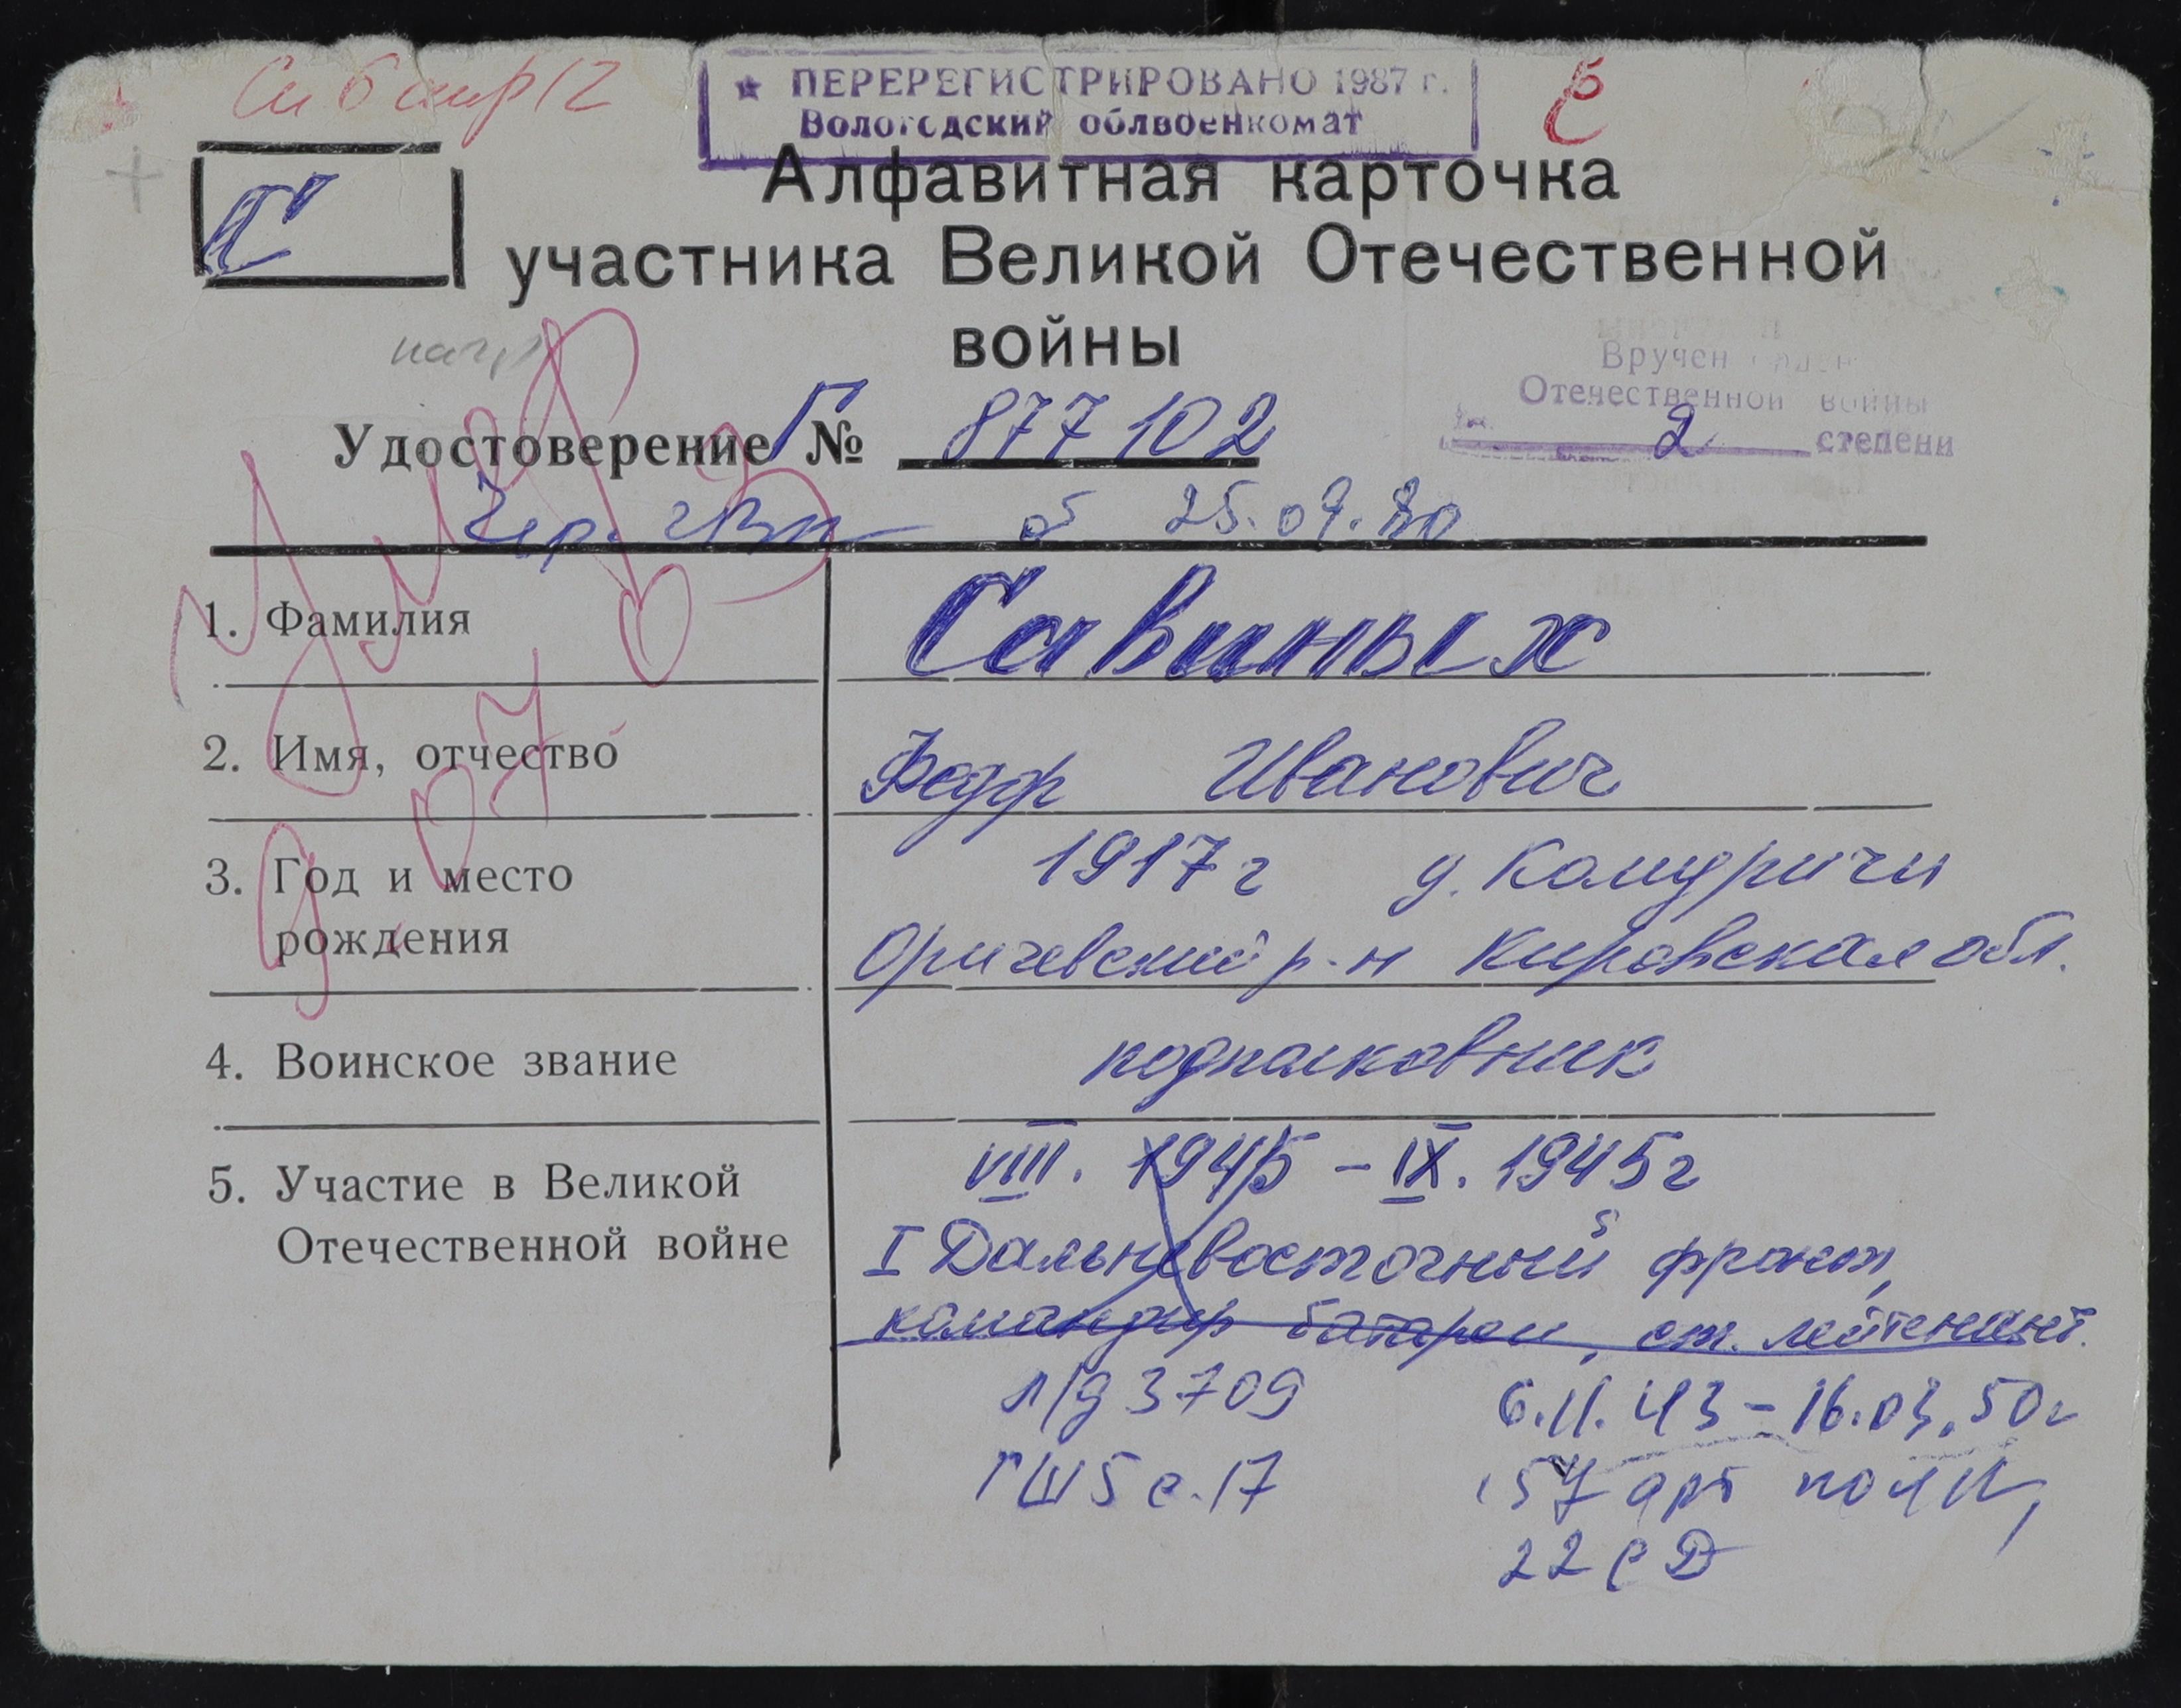 Сибир12
★ ПЕРЕРЕГИСТРИРОВАНО 1987 г.
Вологодский облвоенкомат
С
Алфавитная карточка
участника Великой Отечественной
войны
Вручен орден
Отечественной войны
2 степени
Удостоверение Г № 877102
Чер. ГВК от 25.09.80
1. Фамилия Савиных
2. Имя, отчество Федор Иванович
3. Год и место рождения 1917г д.
Оричевский р-н Кировская обл.
4. Воинское звание подполковник
5. Участие в Великой Отечественной войне VIII. 1945 – IX. 1945г
I Дальневосточный фронт,
командир батареи, ст. лейтенант.
л/д 3709 6.11.43 – 16.03.50г
ГШ 5 с.17 157 арт полк,
22 сД